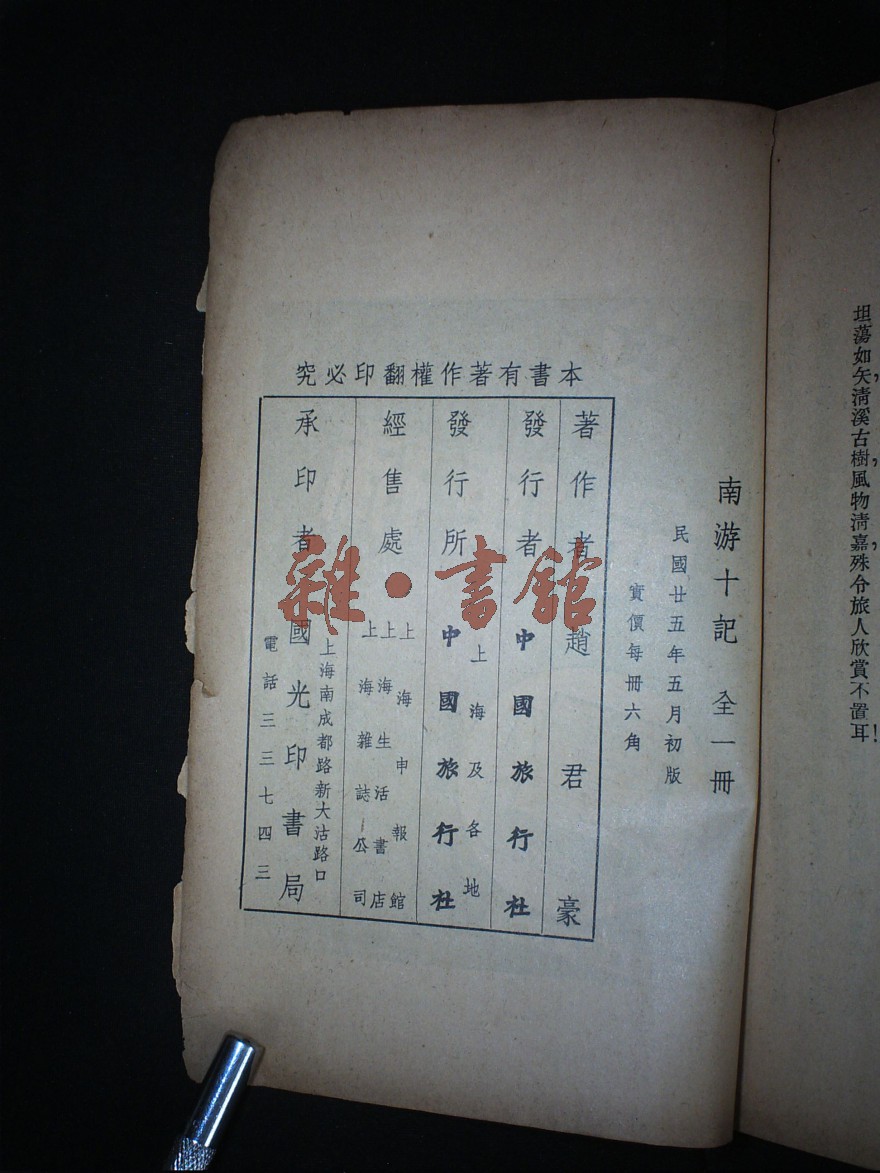 坦蕩如矢，清溪古樹，風物清嘉，殊令旅人欣賞不置耳！
南游十記 全一冊
民國廿五年五月初版
實價每冊六角
本書有著作權翻印必究
著作者 趙君豪
發行者 中國旅行社
發行所 上海及各地
中國旅行社
經售處 上海申報館
上海生活書店
上海雜誌公司
承印者 國光印書局
上海南成都路新大沽路口
電話三三七四三
雜·書館